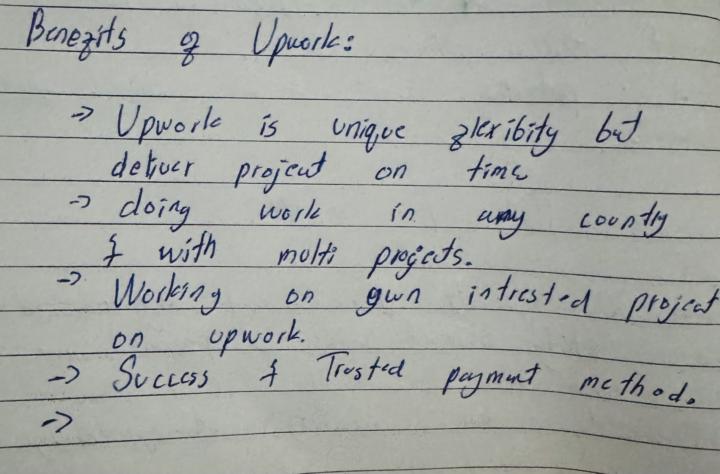 Benefits of Upwork:
-> Upwork is unique flexibity but
deliver project on time
-> doing work in any country
& with multi projects.
-> Working on own intrested project
on upwork.
-> Success & Trusted payment method.
->